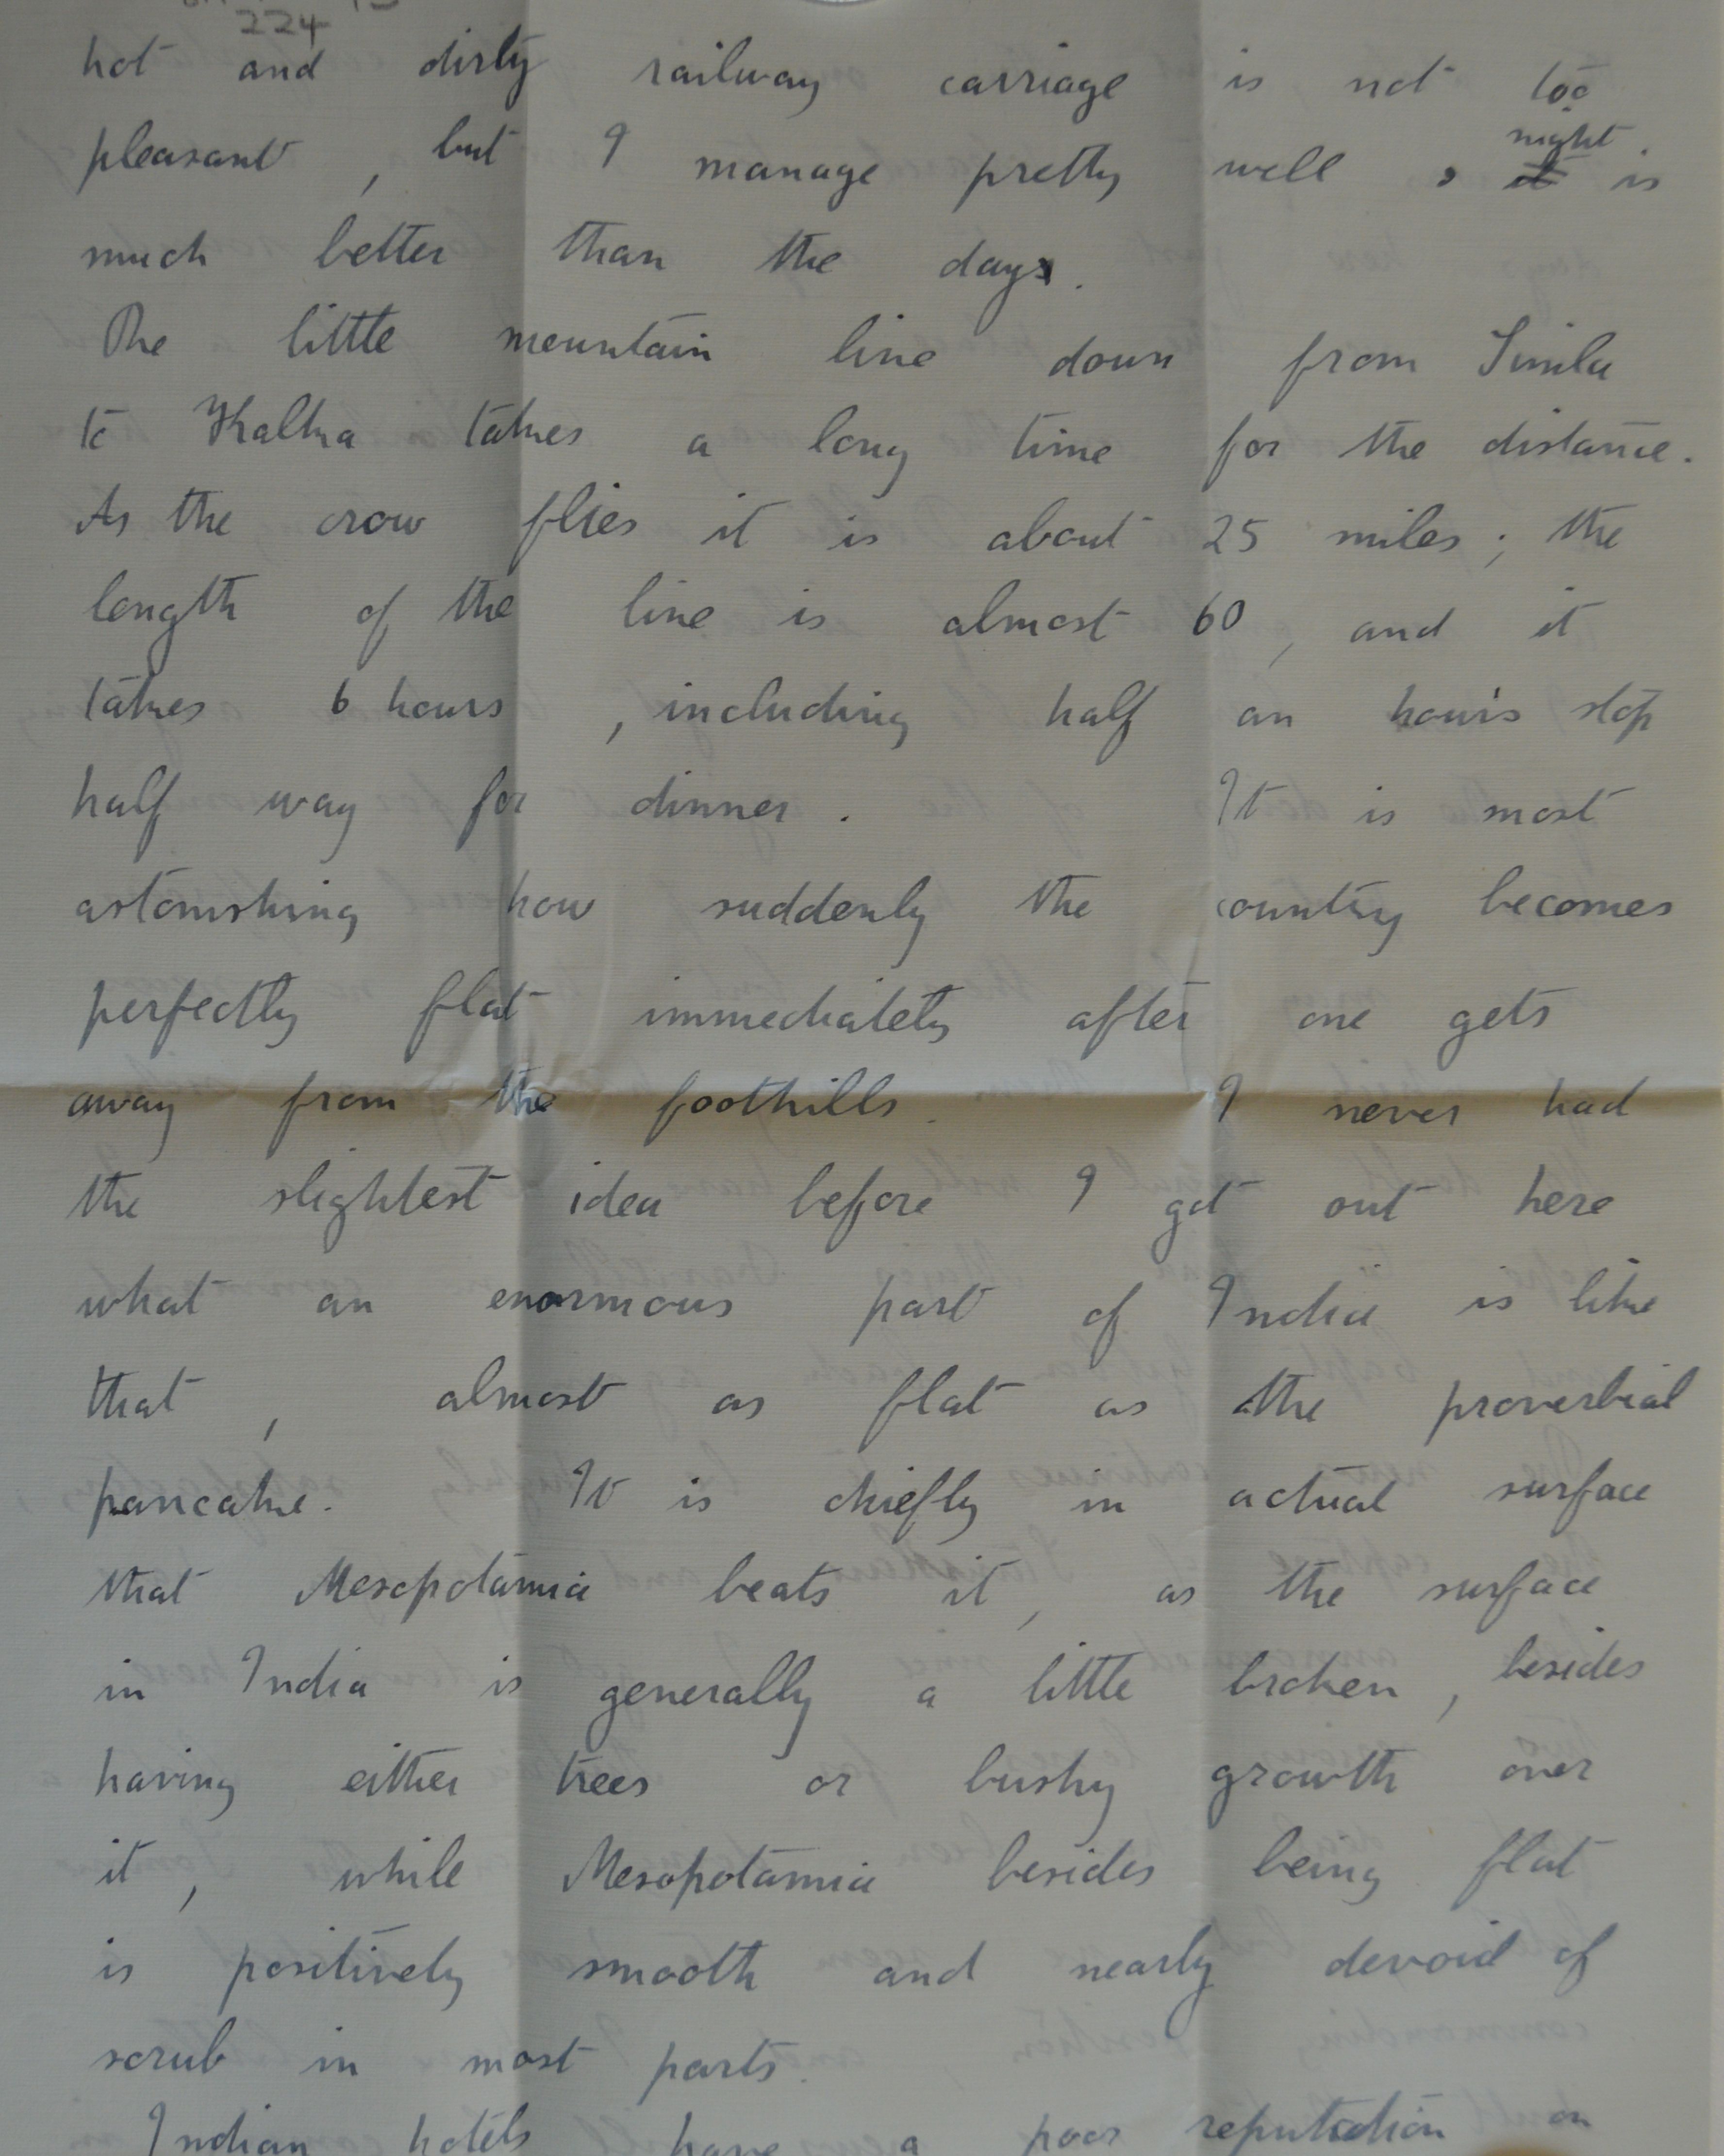 224
hot and dirty railway carriage is not too
pleasant, but I manage pretty well, night is
much better than the days.
The little mountain line down from Simla
to Kalka takes a long time for the distance.
As the crow flies it is about 25 miles; the
length of the line is almost 60, and it
takes 6 hours, including half an hour's stop
half way for dinner. It is most
astonishing how suddenly the country becomes
perfectly flat immediately after one gets
away from the foothills. I never had
the slightest idea before I got out here
what an enormous part of India is like
that, almost as flat as the proverbial
pancake. It is chiefly in actual surface
that Mesopotamia beats it, as the surface
in India is generally a little broken, besides
having either trees or bushy growth over
it, while Mesopotamia besides being flat
is positively smooth and nearly devoid of
scrub in most parts.
Indian hotels have a poor reputation on